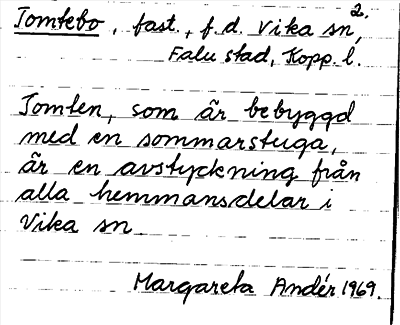 2.
Tomtebo, fast., f.d. Vika sn,
Falu stad, Kopp. l.
Tomten, som är bebyggd
med en sommarstuga,
är en avstyckning från
alla hemmansdelar i
Vika sn
Margareta Andér 1969.